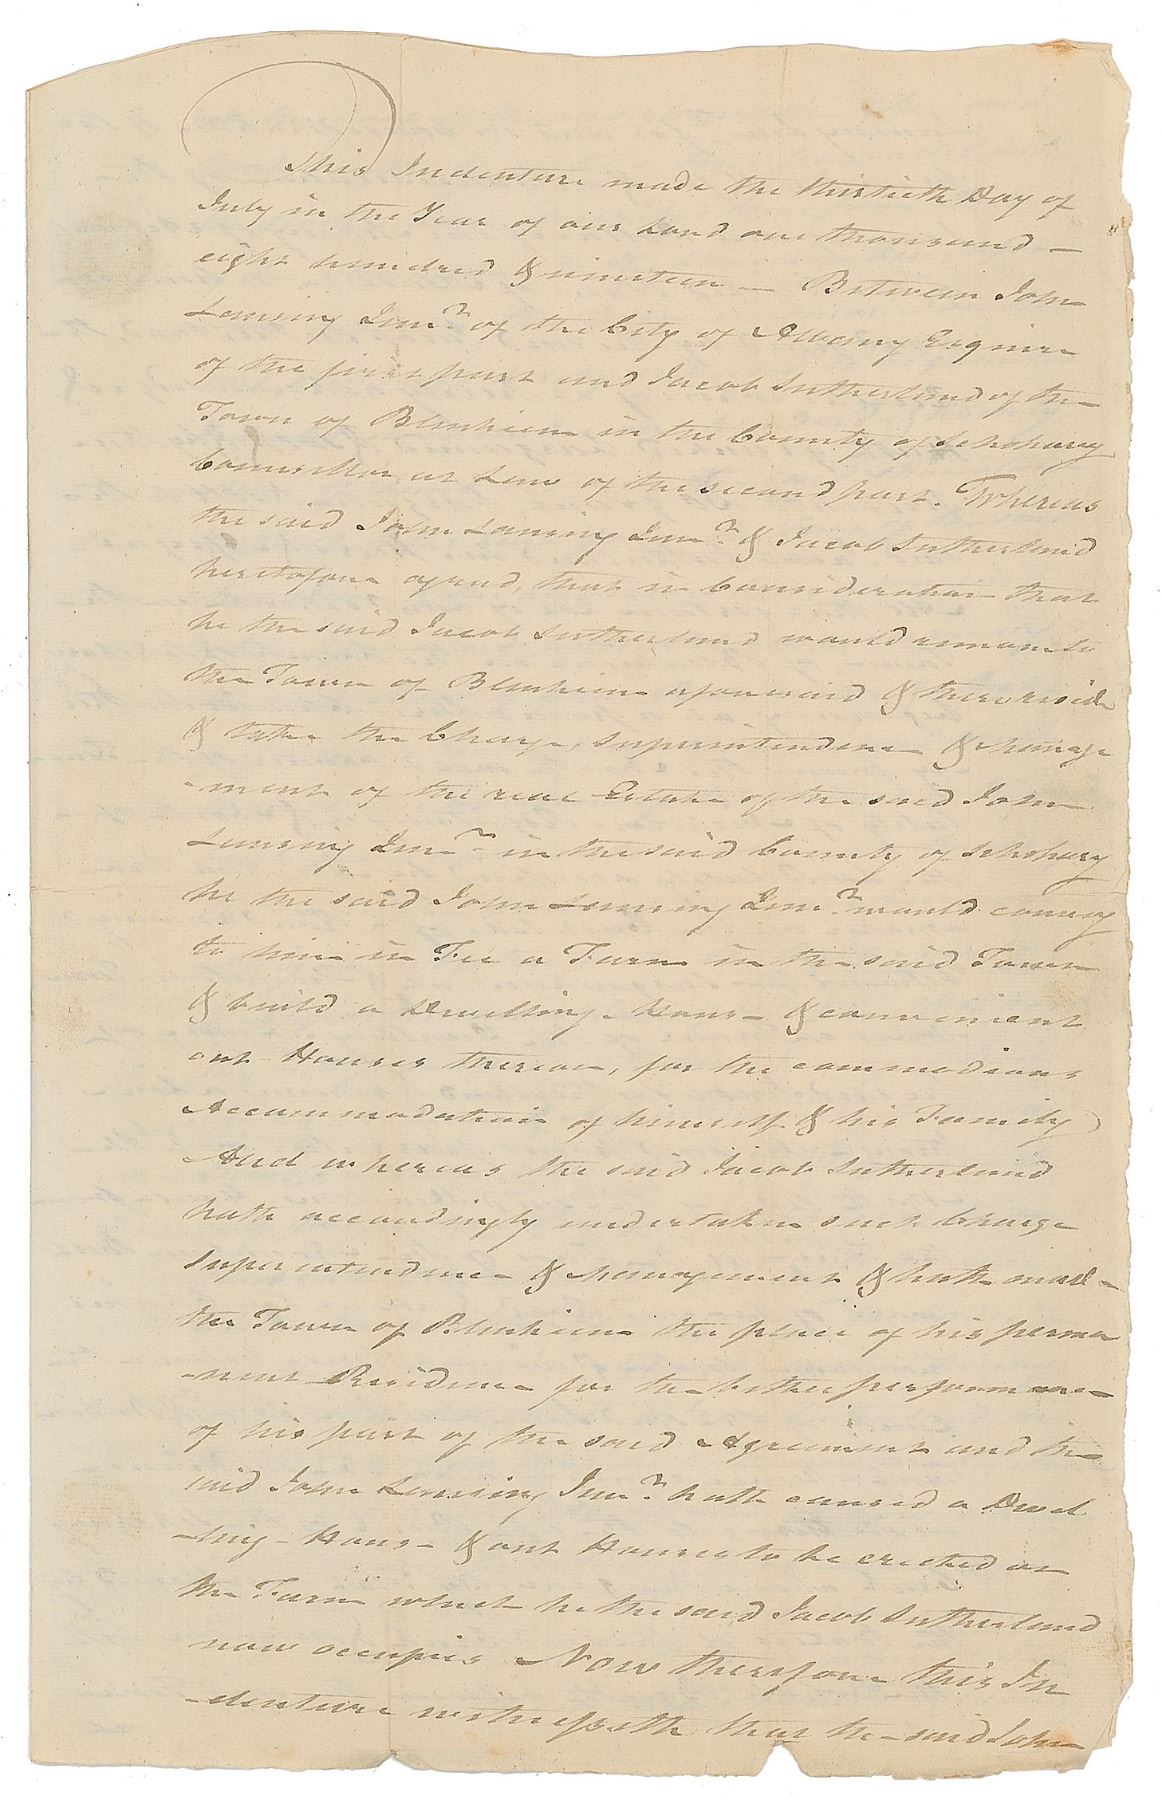 This Indenture made the thirtieth Day of
July in the Year of our Lord one thousand —
eight hundred & nineteen — Between John
Lansing Junr. of the City of Albany Esquire
of the first part and Jacob Sutherland of the
Town of Blenheim in the County of Schohary
Councellor at Law of the second part. Whereas
the said John Lansing Junr. & Jacob Sutherland
heretofore agreed, that in Consideration that
he the said Jacob Sutherland would remove to
the Town of Blenheim aforesaid & there reside
& take the Charge, Superintendence & Manage
-ment of the real Estate of the said John
Lansing Junr. in the said County of Schohary
he the said John Lansing Junr. would convey
to him in Fee a Farm in the said Town
& build a Dwelling-House & convenient
out Houses thereon, for the commodious
Accommodation of himself & his Family
And whereas the said Jacob Sutherland
hath accordingly undertaken such Charge
Superintendence & Management & hath made
the Town of Blenheim the place of his perma
-nent Residence for the better performance
of his part of the said Agreement and the
said John Lansing Junr. hath caused a Dwel
-ling-House & out Houses to be erected on
the Farm which he the said Jacob Sutherland
now occupies Now therefore this In
-denture witnesseth that the said John